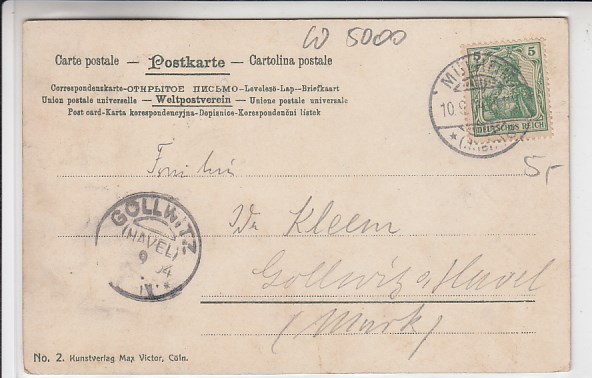 W 5000
Carte postale — Postkarte — Cartolina postale
Correspondenzkarte-ОТКРЫТОЕ ПИСЬМО-Levelező-Lap-Briefkaart
Union postale universelle — Weltpostverein — Unione postale universale
Post card-Karta korespondencyjna-Dopisnice-Korespondenční lístek
5
DEUTSCHES REICH
10.9
5,-
GOLLWITZ
(HAVEL)
9 04
Ida Kleem
Gollwitz a Havel
(Mark)
No. 2. Kunstverlag Max Victor, Cöln.